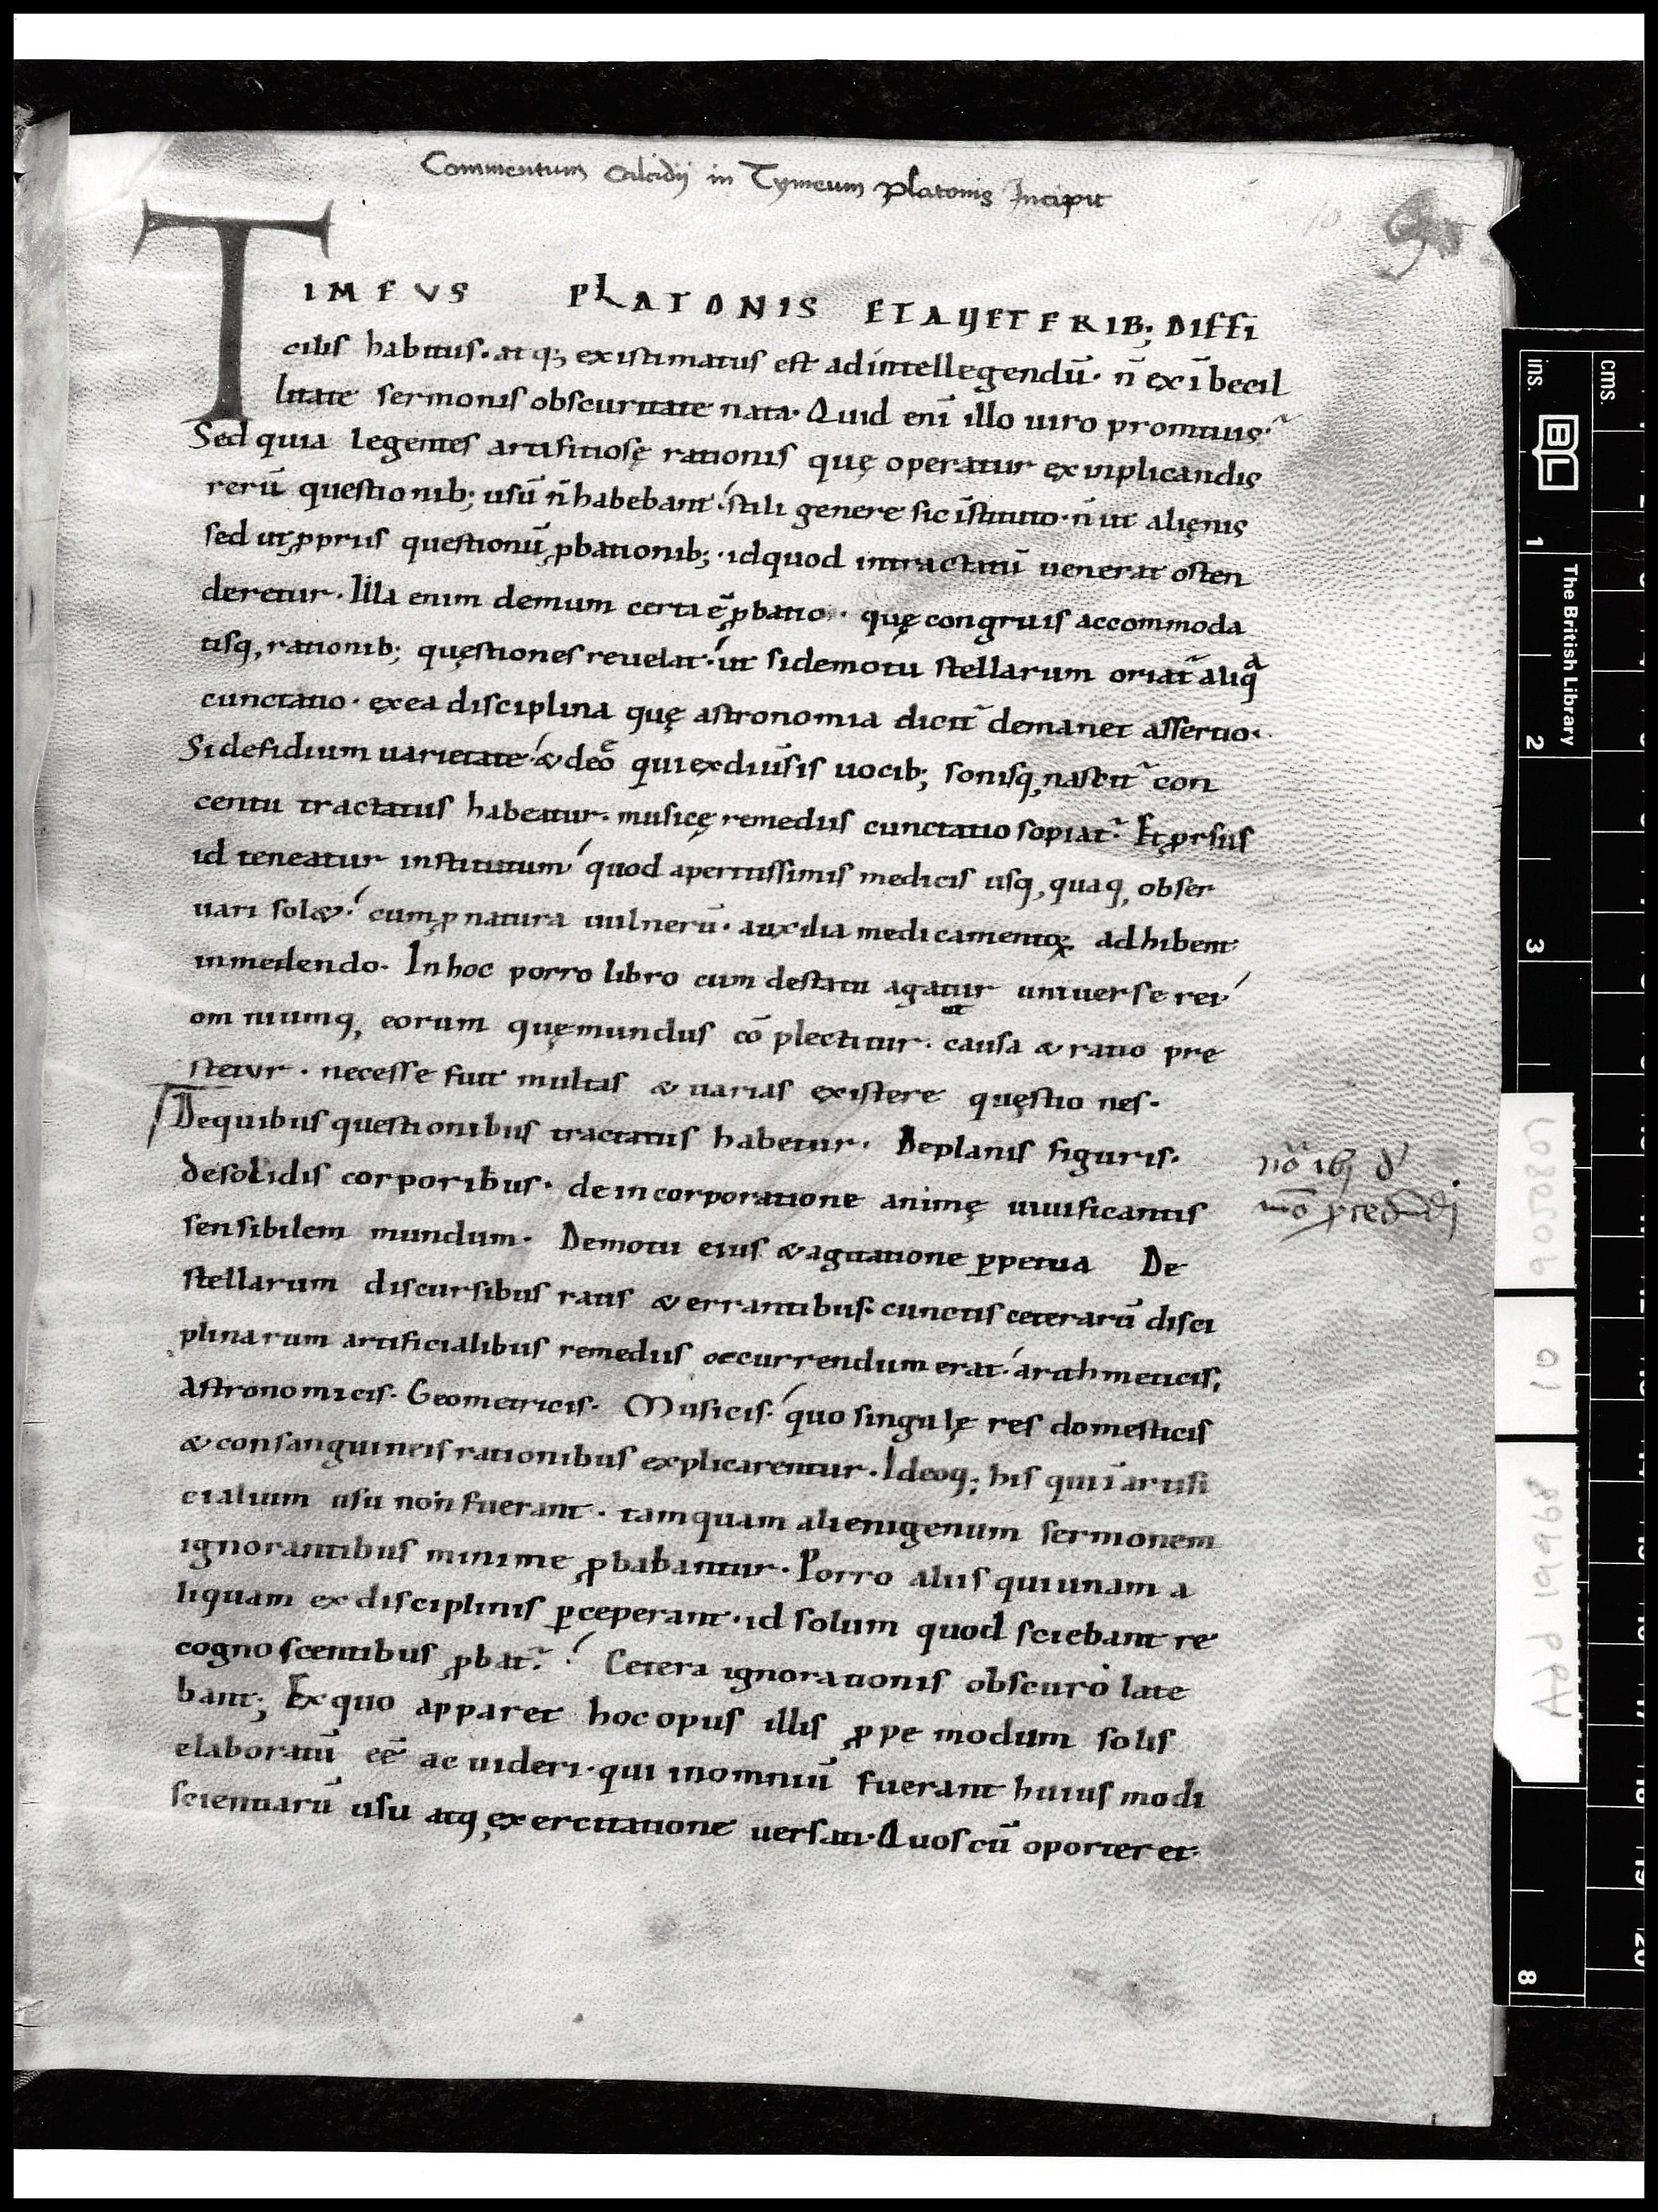 Commentum Calcidij in Tymeum Platonis Incipit
TIMEVS PLATONIS ET A VETERIB; DIFFI
cilis habitus. atq; existimatus est ad intellegendū. n̄ ex ībecil
litate sermonis obscuritate nata. Quid eni̅ illo uiro promtius.
Sed quia legentes artifitiosę rationis quę operatur ex inplicandis
rerū questionib; usū n̄ habebant. stili genere sic īstituto. n̄ ut alięnis
sed ut ꝓpriis questionū ꝓbationib; . id quod in tractatū uenerat osten
deretur. Illa enim demum certa ē ꝓbatio. quę congruis accommoda
tisq, rationib; quęstiones reuelat. ut si de motu stellarum oriat̃ aliqᵃ
cunctatio. ex ea disciplina quę astronomia dicit̃ demanet assertio.
Si de fidium uarietate. & de eo qui ex diu̅sis uocib; sonisq, nascit̃ con
centu tractatus habeatur. musicę remediis cunctatio sopiat̃. Et ꝓrsus
id teneatur institutum quod apertissimis medicis usq, quaq, obser
uari sol&. cum ꝓ natura uulnerū. auxilia medicamentoꝝ adhibent
in medendo. In hoc porro libro cum de statu agatur uniuerse rei
omniumq, eorum quę mundus cō plectitur. causa & ratio pre
stetur. necesse fuit multas & uarias existere quęstio nes.
De quibus questionibus tractatus habetur. De planis figuris.
de solidis corporibus. de incorporatione animę uiuificantis
sensibilem mundum. De motu eius & agitatione ꝑpetua De
stellarum discursibus ratis & errantibus. cunctis ceterarū disci
plinarum artificialibus remediis occurrendum erat. arithmeticis;
Astronomicis. Geometricis. Musicis. quo singulę res domesticis
& consanguineis rationibus explicarentur. Ideoq; his qui ī artifi
cialium usu non fuerant. tamquam alienigenum sermonem
ignorantibus minime ꝓbabantur. Porro aliis qui unam a
liquam ex disciplinis ꝑceperant. id solum quod sciebant re
cognoscentibus ꝓbat̃. Cetera ignorationis obscuro late
bant; Ex quo apparet hoc opus illis ꝓpe modum solis
elaboratū eē ac uideri. qui in omniū fuerant huius modi
scientiarū usu atq, exercitatione uersati. Quos cū oporteret
The British Library
BL
ins.
cms.
1
2
3
8
9050807
10
Add 19968